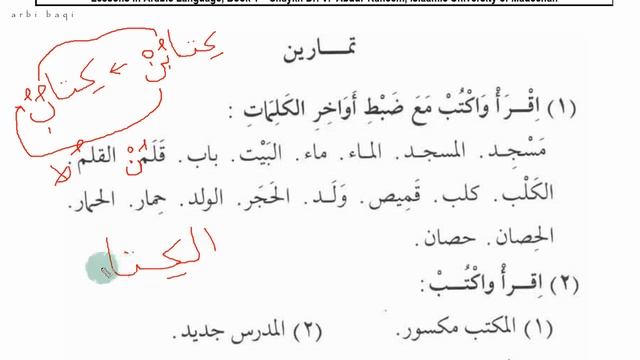 Lessons in Arabic Language, Book 1 - Shaykh Dr. V. Abdur Raheem, Islaamic University of Madeenah
arbi baqi
كتابن ← كتاب
تمارين
(١) اِقْرَأْ وَاكْتُبْ مَعَ ضَبْطِ أَوَاخِرِ الكَلِمَاتِ :
مَسْجِد. المسجد. الماء. ماء. البَيْت. باب. قَلَمٌ. القلمُ.
الكَلْب. كلب. قَمِيص. وَلَد. الحَجَر. الولد. حِمار. الحمار.
الحِصان. حصان.
الكتا
(٢) اِقْرأْ وَاكْتُبْ:
(١) المكتب مكسور. (٢) المدرس جديد.